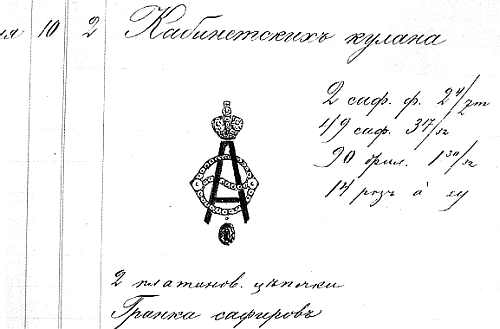 10 2 Кабинетскихъ кулана
2 саф. ф. 2 4/32
49 саф. 3 17/32
90 брил. 1 30/32
14 розъ à
2 платинов. цѣпочки
Гранка сафировъ